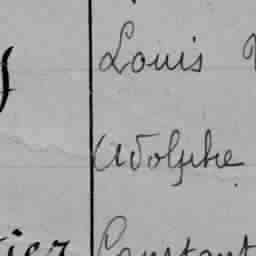 Louis
Adolphe
Constant